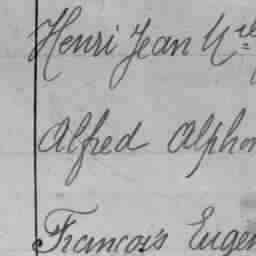 Henri Jean
Alfred Alphon
François Eugen